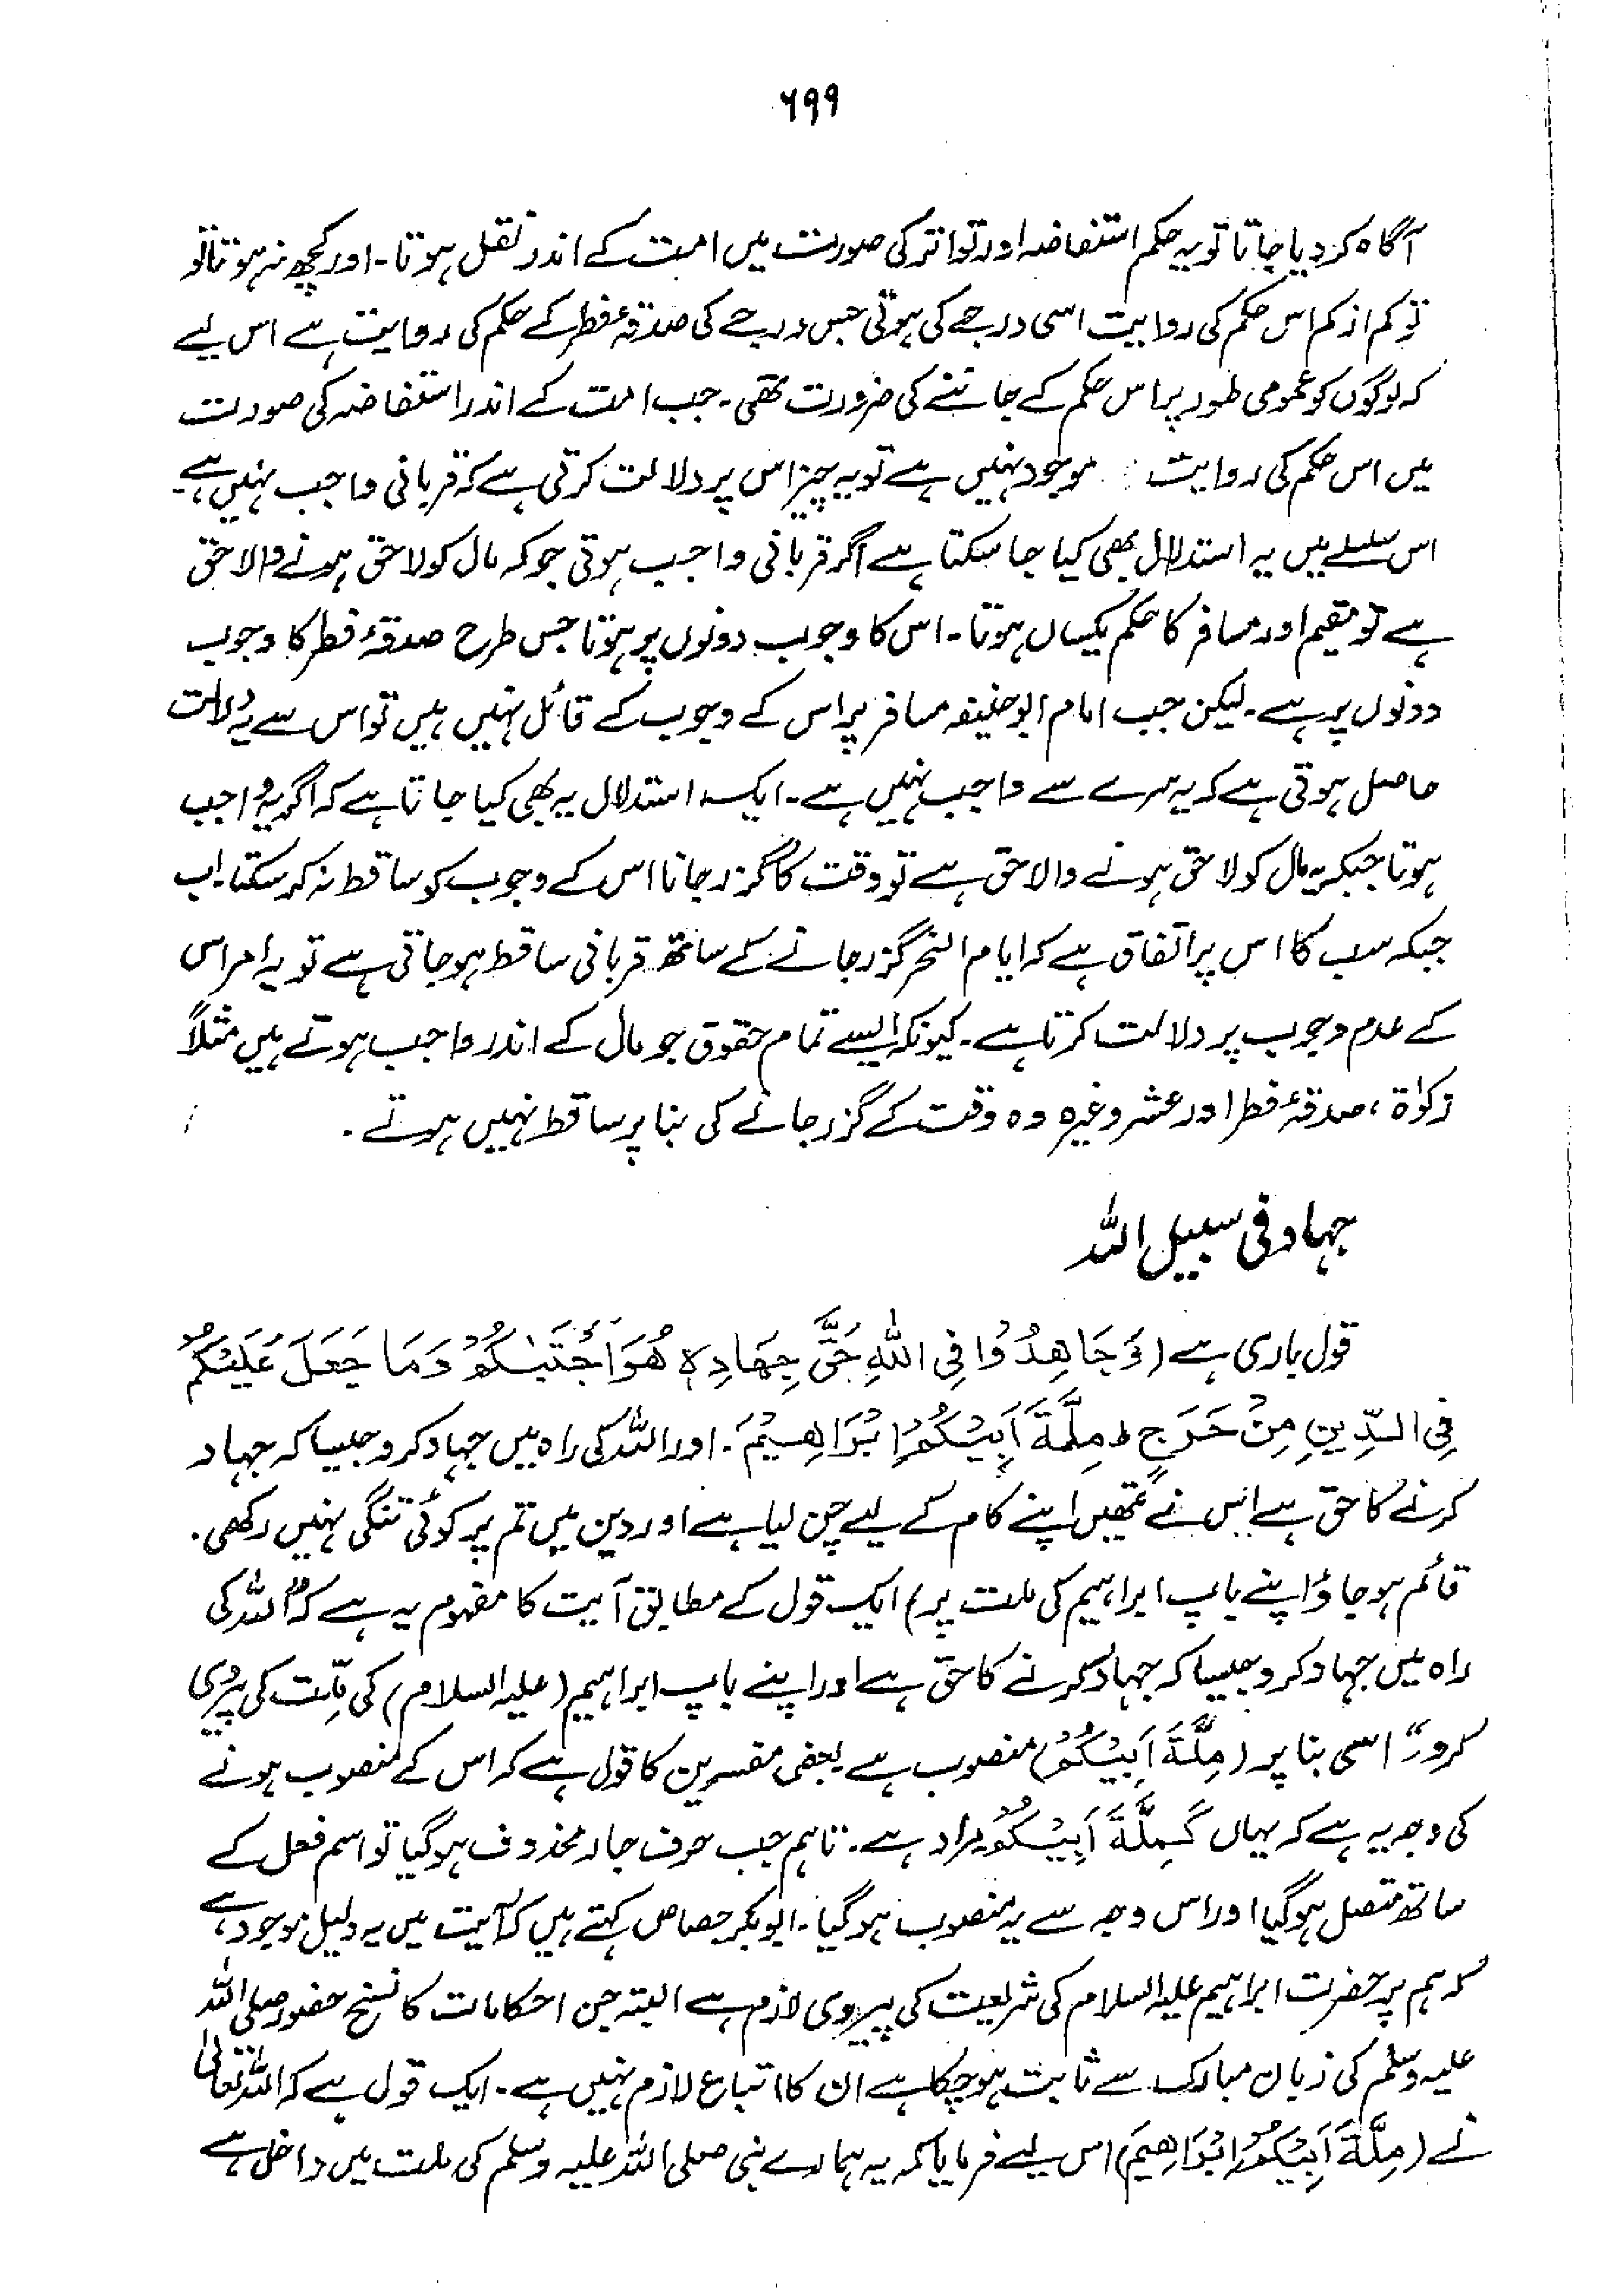 ۶۹۹
آگاہ کردیا جاتا تو یہ حکم استفاضہ اور تواتر کی صورت میں امت کے اندر نقل ہوتا۔ اور کچھ نہ ہوتا تو
تو کم از کم اس حکم کی روایت اسی درجے کی ہوتی جس درجے کی صدقۂ فطر کے حکم کی روایت ہے اس لیے
کہ لوگوں کو عمومی طور پر اس حکم کے جاننے کی ضرورت تھی۔ جب امت کے اندر استفاضہ کی صورت
میں اس حکم کی روایت موجود نہیں ہے تو یہ چیز اس پر دلالت کرتی ہے کہ قربانی واجب نہیں ہے۔
اس سلسلے میں یہ استدلال بھی کیا جا سکتا ہے اگر قربانی واجب ہوتی جو کہ مال کو لاحق ہونے والا حق
ہے تو مقیم اور مسافر کا حکم یکساں ہوتا۔ اس کا وجوب دونوں پر ہوتا جس طرح صدقۂ فطر کا وجوب
دونوں پر ہے۔ لیکن جب امام ابوحنیفہ مسافر پر اس کے وجوب کے قائل نہیں ہیں تو اس سے یہ دلالت
حاصل ہوتی ہے کہ یہ سرے سے واجب نہیں ہے۔ ایک استدلال یہ بھی کیا جاتا ہے کہ اگر یہ واجب
ہوتا جبکہ یہ مال کو لاحق ہونے والا حق ہے تو وقت کا گزر جانا اس کے وجوب کو ساقط نہ کرسکتا۔ اب
جبکہ سب کا اس پر اتفاق ہے کہ ایام النحر گزر جانے کے ساتھ قربانی ساقط ہو جاتی ہے تو یہ امر اس
کے عدم وجوب پر دلالت کرتا ہے۔ کیونکہ ایسے تمام حقوق جو مال کے اندر واجب ہوتے ہیں مثلاً
زکوٰۃ، صدقۂ فطر اور عشر وغیرہ وہ وقت کے گزر جانے کی بنا پر ساقط نہیں ہوتے۔
جہاد فی سبیل اللہ
قول باری ہے (وَجَاهِدُوْا فِی اللّٰهِ حَقَّ جِهَادِهٖ هُوَ اجْتَبٰىكُمْ وَمَا جَعَلَ عَلَيْكُمْ
فِی الدِّيْنِ مِنْ حَرَجٍ ط مِلَّةَ اَبِيْكُمْ اِبْرَاهِيْمَ۔ اور اللہ کی راہ میں جہاد کرو جیسا کہ جہاد
کرنے کا حق ہے اس نے تمھیں اپنے کام کے لیے چن لیا ہے اور دین میں تم پر کوئی تنگی نہیں رکھی۔
قائم ہو جاؤ اپنے باپ ابراہیم کی ملت پر) ایک قول کے مطابق آیت کا مفہوم یہ ہے کہ "اللہ کی
راہ میں جہاد کرو جیسا کہ جہاد کرنے کا حق ہے اور اپنے باپ ابراہیم (علیہ السلام) کی ملّت کی پیروی
کرو" اسی بنا پر (مِلَّةَ اَبِيْكُمْ) منصوب ہے۔ بعض مفسرین کا قول ہے کہ اس کے منصوب ہونے
کی وجہ یہ ہے کہ یہاں كَمِلَّةَ اَبِيْكُمْ مراد ہے۔ تاہم جب حرف جار محذوف ہوگیا تو اسم فعل کے
ساتھ متصل ہوگیا اور اس وجہ سے یہ منصوب ہوگیا۔ ابوبکر جصاص کہتے ہیں کہ آیت میں یہ دلیل موجود ہے
کہ ہم پر حضرت ابراہیم علیہ السلام کی شریعت کی پیروی لازم ہے البتہ جن احکامات کا نسخ حضور صلی اللہ
علیہ وسلم کی زبان مبارک سے ثابت ہوچکا ہے ان کا اتباع لازم نہیں ہے۔ ایک قول ہے کہ اللہ تعالیٰ
نے (مِلَّةَ اَبِيْكُمْ اِبْرَاهِيْمَ) اس لیے فرمایا کہ یہ ہمارے نبی صلی اللہ علیہ وسلم کی ملت میں داخل ہے